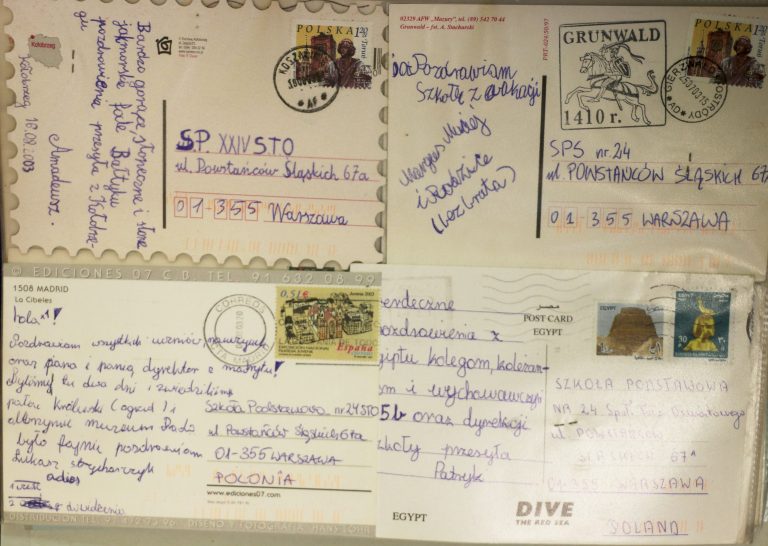 Kołobrzeg
Bardzo gorące, słoneczne i słone
jak morskie fale Bałtyku
pozdrowienia przesyła z Kołobrze-
gu
Amadeusz.
Kołobrzeg 18.08.2003
POLSKA 1,20
SP. XXIV STO
ul. Powstańców Śląskich 67a
01-355 Warszawa
02329 AFW "Mazury" tel. (89) 542 70 44
Grunwald - fot. A. Stachurski
Pozdrawiam
Szkołę z wakacji
i Rodzice
(bez brata)
GRUNWALD
1410 r.
POLSKA 1,20
SPS nr 24
ul. POWSTAŃCÓW ŚLĄSKICH 67
01-355 WARSZAWA
© EDICIONES 07 C.B. TEL. 91 632 08 99
1508 MADRID
La Cibeles
hola!
Pozdrawiam wszystkich uczniów nauczycieli
oraz pana i panią dyrektor z madrytu!
Byliśmy tu dwa dni i zwiedziliśmy
pałac Królewski (ogród) i
olbrzymie muzeum Prado
było fajnie pozdrawiam
Łukasz
adios
CORREOS
MADRID
0,51€
España
Szkoła Podstawowa nr 24 STO
ul. Powstańców Śląskich 67a
01-355 WARSZAWA
POLONIA
www.ediciones07.com
serdeczne
pozdrowienia z
giptu kolegom, koleżan-
om i wychowawczyni
5b oraz dyrekcji
szkoły przesyła
Patryk
POST CARD
EGYPT
مصر
EGYPT
EGYPT
30
SZKOŁA PODSTAWOWA
NR 24 Społ. Tow. Oświatowego
ul. POWSTAŃCÓW
ŚLĄSKICH 67A
01-355 WARSZAWA
POLAND
EGYPT
DIVE
THE RED SEA